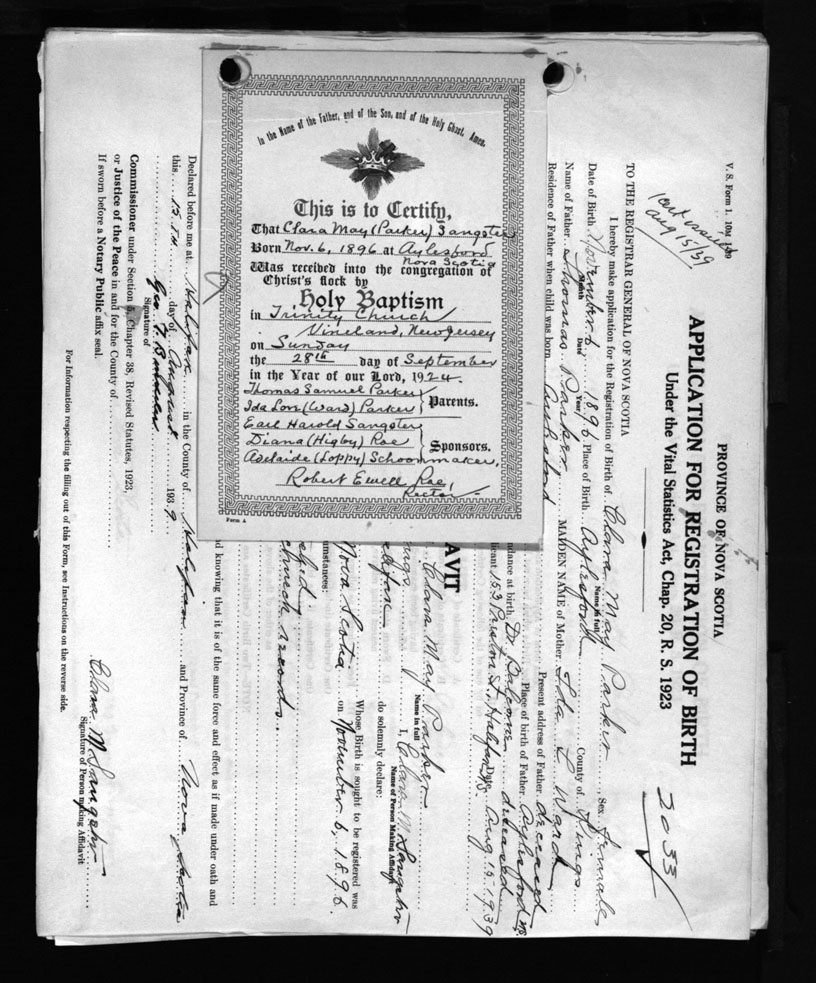 In the Name of the Father, and of the Son, and of the Holy Ghost. Amen.
This is to Certify,
That Clara May (Parker) Sangster
Born Nov. 6, 1896 at Aylesford
Nova Scotia
Was received into the congregation of
Christ's flock by
Holy Baptism
in Trinity Church
Vineland, New Jersey
on Sunday
the 28th day of September
in the Year of our Lord, 1924.
Thomas Samuel Parker
Ida Lore (Ward) Parker
Parents.
Earl Harold Sangster
Diana (Higby) Roe
Adelaide (Loppy) Schoonmaker,
Sponsors.
Robert Ewell Roe,
Rector
Form A
V. S. Form 1.
Aug 15/39
PROVINCE OF NOVA SCOTIA
APPLICATION FOR REGISTRATION OF BIRTH
Under the Vital Statistics Act, Chap. 20, R. S. 1923
2033
TO THE REGISTRAR GENERAL OF NOVA SCOTIA
I hereby make application for the Registration of Birth of Clara May Parker, Sex female
Name in full
Date of Birth November 6 1896 Place of Birth Aylesford County of Kings
Month Date Year
Name of Father Thomas Parker MAIDEN NAME of Mother Ida L Ward
Residence of Father when child was born Aylesford Present address of Father deceased
Place of birth of Father Aylesford NS
ndance at birth Dr. Balcome deceased
icant 153 Preston St. Halifax NS Date Aug. 15-1939
AVIT
Clara May Parker I, Clara M Sangster
Name in full Name of Person Making Affidavit
ngs
alifax do solemnly declare:
Whose Birth is sought to be registered was
Nova Scotia on November 6, 1896.
cumstances:
church records.
d knowing that it is of the same force and effect as if made under oath and
Declared before me at Halifax in the County of Halifax and Province of Nova Scotia
this 15th day of August 1939
Signature of
Clara M Sangster
Signature of Person making Affidavit
Commissioner under Section 5, Chapter 38, Revised Statutes, 1923,
or Justice of the Peace in and for the County of
If sworn before a Notary Public affix seal.
For Information respecting the filling out of this Form, see Instructions on the reverse side.